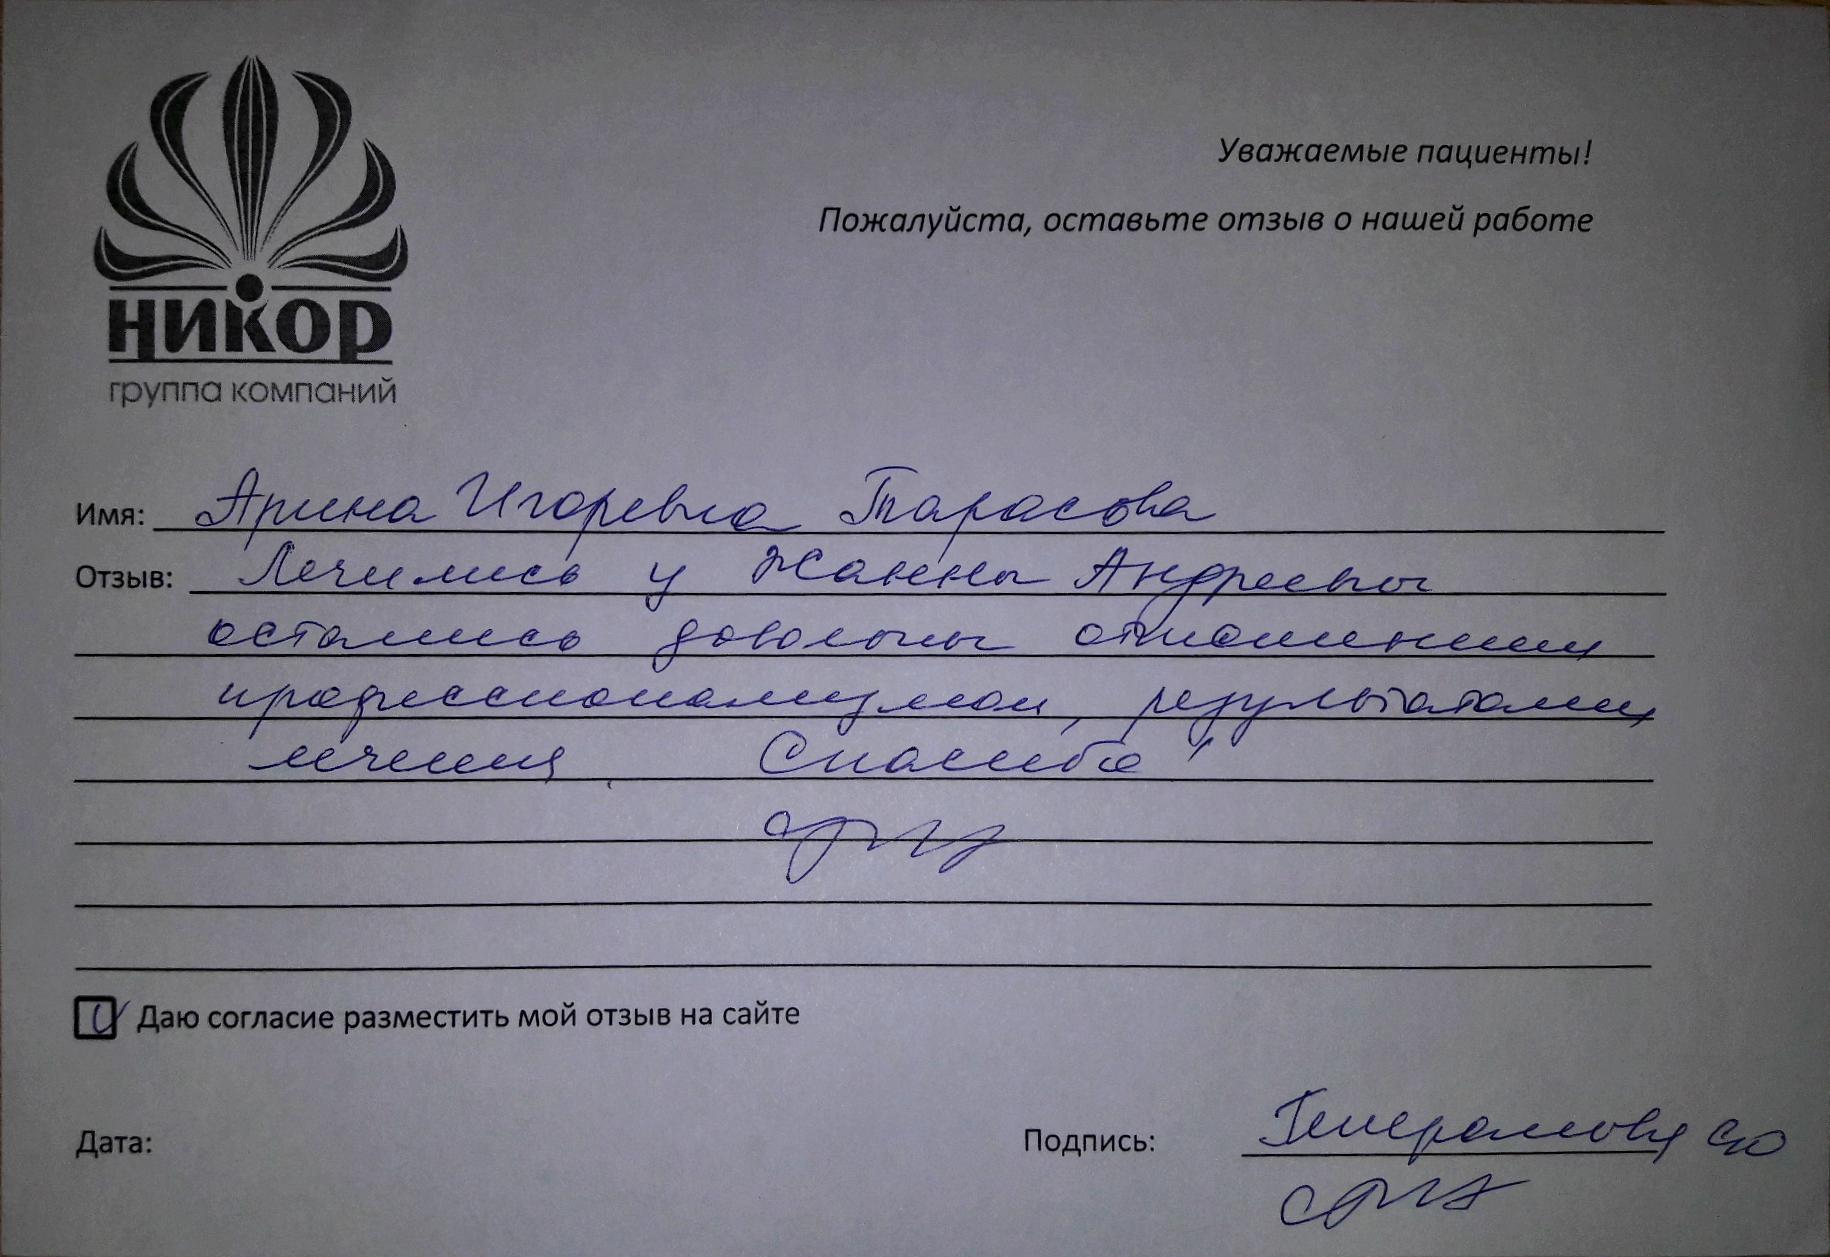 Уважаемые пациенты!
Пожалуйста, оставьте отзыв о нашей работе
НИКОР
группа компаний
Имя: Арина Игоревна Тарасова
Отзыв: Лечились у Жанны Андреевны
остались довольны отношением
профессионализмом, результатами
лечения. Спасибо!
Даю согласие разместить мой отзыв на сайте
Дата:
Подпись: